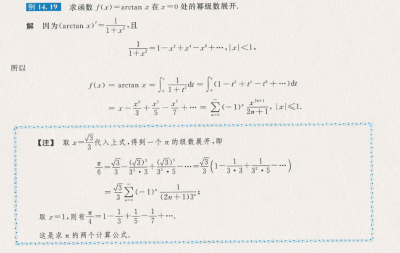 例 14.19 求函数 f(x)=arctan x 在 x=0 处的幂级数展开.
解 因为(arctan x)′=1/(1+x²),且
1/(1+x²)=1-x²+x⁴-x⁶+…,|x|<1,
所以
f(x)=arctan x=∫₀ˣ 1/(1+t²)dt=∫₀ˣ(1-t²+t⁴-t⁶+…)dt
=x-x³/3+x⁵/5-x⁷/7+…=∑(-1)ⁿ x²ⁿ⁺¹/(2n+1), |x|≤1.
【注】 取 x=√3/3代入上式,得到一个 π 的级数展开,即
π/6=√3/3-(√3/3)³/3+(√3/3)⁵/5-…=√3/3(1-1/(3·3)+1/(3²·5)-…)
=√3/3∑(-1)ⁿ 1/((2n+1)3ⁿ);
取 x=1,则有π/4=1-1/3+1/5-1/7+….
这是求 π 的两个计算公式.